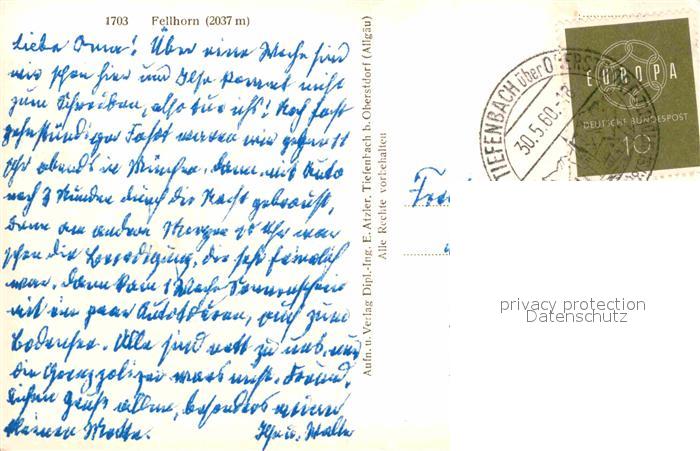 1703 Fellhorn (2037 m)
Liebe Oma! Über eine Woche sind
wir schon hier und Ilse kommt nicht
zum Schreiben, also tue ich's! Nach fast
zehnstündiger Fahrt waren wir gegen
Uhr abends in München, dann mit Auto
noch 3 Stunden durch die Nacht gebraust,
denn am andern Morgen Uhr war
schon die Beerdigung, die sehr feierlich
war. Dann kam 1 Woche Sonnenschein
mit ein paar Autotouren, auch zum
Bodensee. Alle sind nett zu uns, nur
die Grenzpolizei war's nicht. Freund-
lichen Gruß allen, besonders meiner
kleinen Walter
Aufn. u. Verlag Dipl.-Ing. E. Atzler, Tiefenbach b. Oberstdorf (Allgäu)
Alle Rechte vorbehalten
TIEFENBACH über OBERST
30.5.60
EUROPA
DEUTSCHE BUNDESPOST
10
privacy protection
Datenschutz